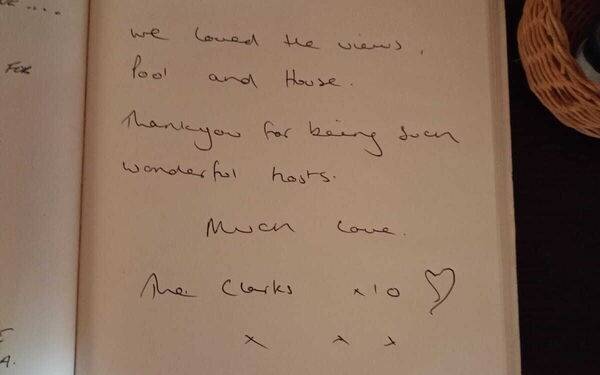 we loved the views,
Pool and House.
Thankyou for being such
wonderful hosts.
Much Love.
The Clarks x10
x x x
FOR
A.